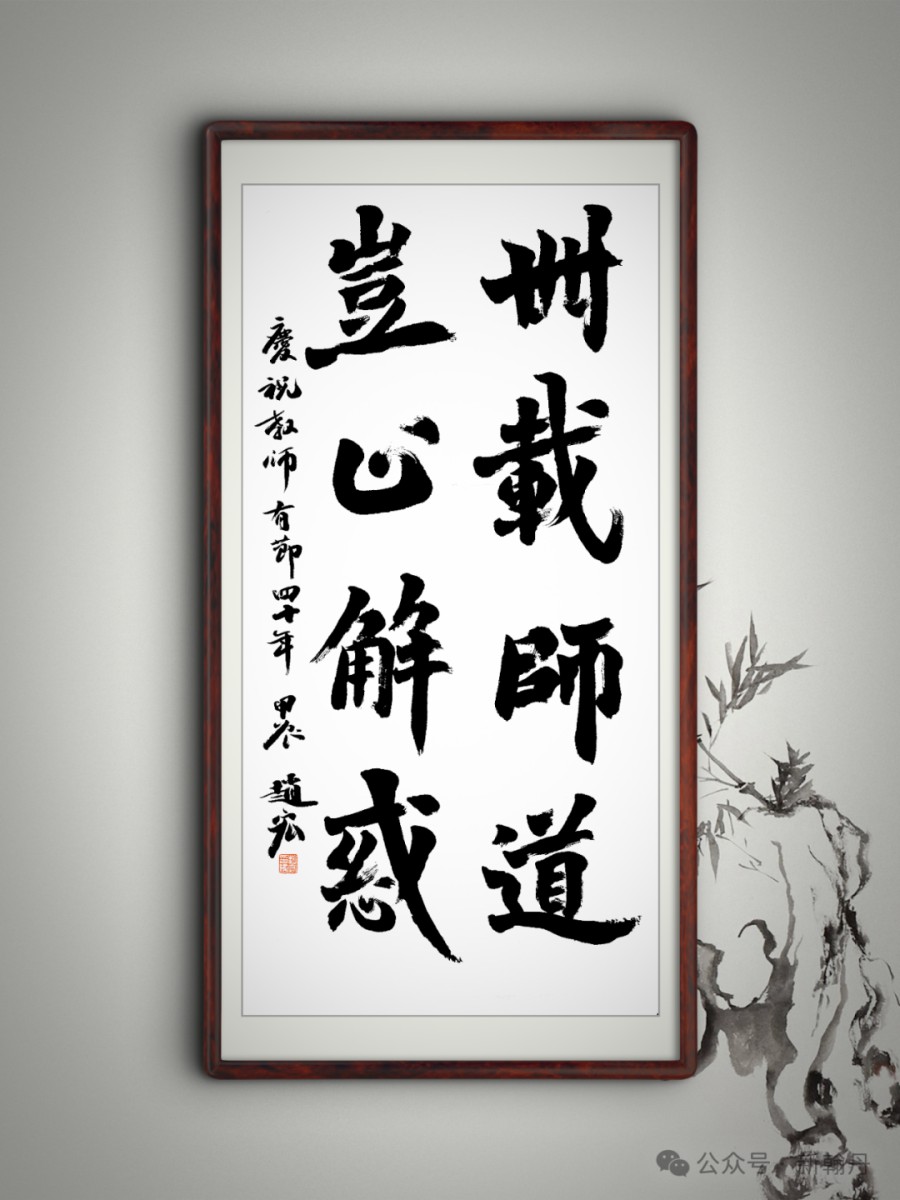 卌載師道
豈止解惑
慶祝教师有節四十年 甲辰 趙宏
公众号 · 新翰丹